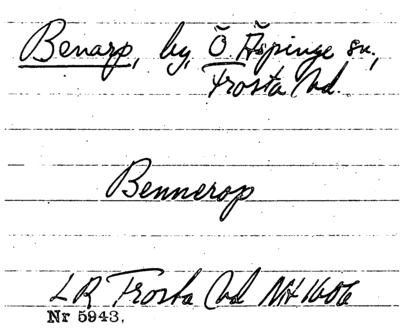 Benarp, by, Ö. Äspinge sn.,
Frosta hd.
Bennerop
LR Frosta hd NH 1606
Nr 5943.